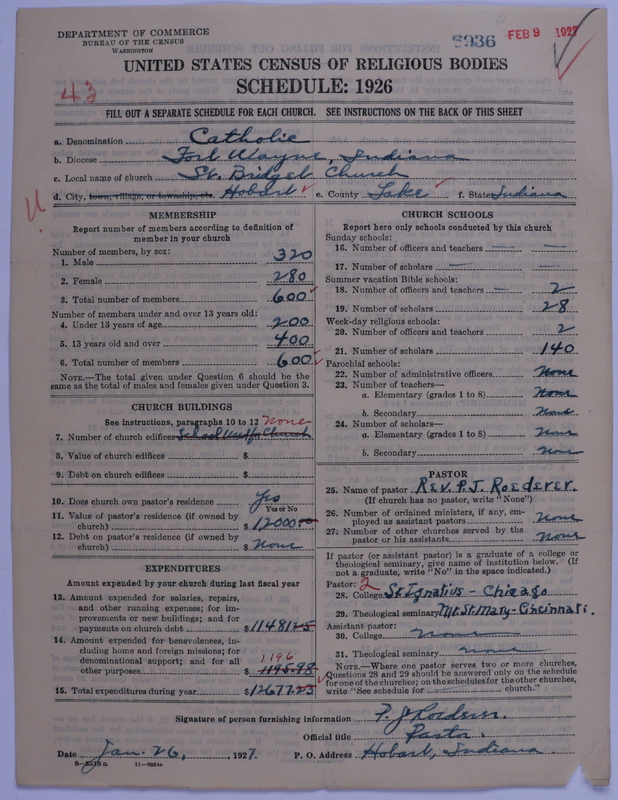 DEPARTMENT OF COMMERCE
BUREAU OF THE CENSUS
WASHINGTON
5936 FEB 9 1927
UNITED STATES CENSUS OF RELIGIOUS BODIES
SCHEDULE: 1926
43
FILL OUT A SEPARATE SCHEDULE FOR EACH CHURCH. SEE INSTRUCTIONS ON THE BACK OF THIS SHEET
a. Denomination Catholic
b. Diocese Fort Wayne, Indiana
c. Local name of church St. Bridget Church
d. City, town, village, or township, etc. Hobart e. County Lake f. State Indiana
MEMBERSHIP
Report number of members according to definition of
member in your church
Number of members, by sex:
1. Male 320
2. Female 280
3. Total number of members 600
Number of members under and over 13 years old:
4. Under 13 years of age 200
5. 13 years old and over 400
6. Total number of members 600
NOTE.—The total given under Question 6 should be the
same as the total of males and females given under Question 3.
CHURCH BUILDINGS
See instructions, paragraphs 10 to 12 None
7. Number of church edifices School Church
8. Value of church edifices $
9. Debt on church edifices $
10. Does church own pastor's residence Yes
Yes or No
11. Value of pastor's residence (if owned by
church) $ 12000.00
12. Debt on pastor's residence (if owned by
church) $ None
EXPENDITURES
Amount expended by your church during last fiscal year
13. Amount expended for salaries, repairs,
and other running expenses; for im-
provements or new buildings; and for
payments on church debt $ 11481.25
14. Amount expended for benevolences, in-
cluding home and foreign missions; for
denominational support; and for all
other purposes 1196 $ 1195.98
15. Total expenditures during year $ 12677.23
CHURCH SCHOOLS
Report here only schools conducted by this church
Sunday schools:
16. Number of officers and teachers —
17. Number of scholars —
Summer vacation Bible schools:
18. Number of officers and teachers — 2
19. Number of scholars 28
Week-day religious schools:
20. Number of officers and teachers 2
21. Number of scholars 140
Parochial schools:
22. Number of administrative officers None
23. Number of teachers—
a. Elementary (grades 1 to 8) None
b. Secondary None
24. Number of scholars—
a. Elementary (grades 1 to 8) None
b. Secondary None
PASTOR
25. Name of pastor Rev. P.J. Roederer.
(If church has no pastor, write "None")
26. Number of ordained ministers, if any, em-
ployed as assistant pastors None
27. Number of other churches served by the
pastor or his assistants None
If pastor (or assistant pastor) is a graduate of a college or
theological seminary, give name of institution below. (If
not a graduate, write "No" in the space indicated.)
Pastor: 2
28. College St. Ignatius - Chicago
29. Theological seminary Mt. St. Mary - Cincinnati.
Assistant pastor:
30. College none
31. Theological seminary none
NOTE.—Where one pastor serves two or more churches,
Questions 28 and 29 should be answered only on the schedule
for one of the churches; on the schedules for the other churches,
write "See schedule for church."
Signature of person furnishing information P. J. Roederer.
Official title Pastor.
Date Jan. 26, 1927. P. O. Address Hobart, Indiana.